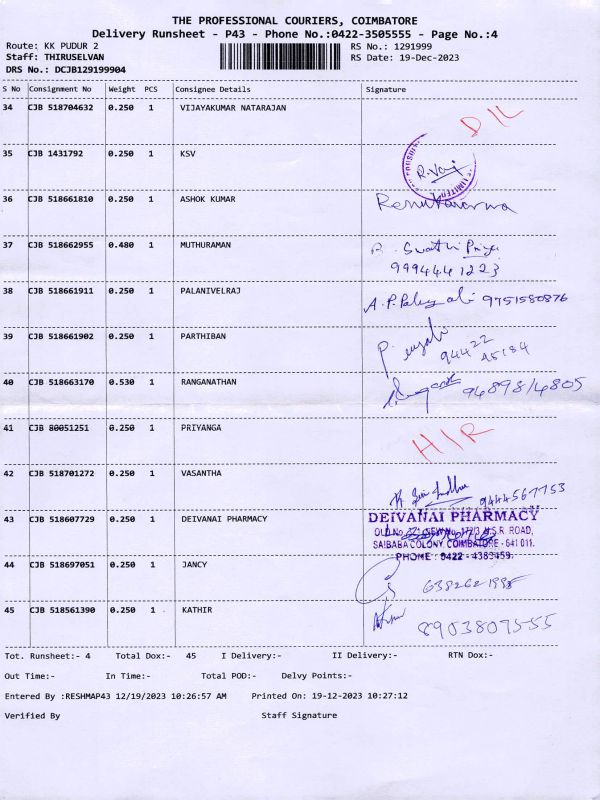 THE PROFESSIONAL COURIERS, COIMBATORE
Delivery Runsheet - P43 - Phone No.:0422-3505555 - Page No.:4
Route: KK PUDUR 2 RS No.: 1291999
Staff: THIRUSELVAN RS Date: 19-Dec-2023
DRS No.: DCJB129199904
S No Consignment No Weight PCS Consignee Details Signature
34 CJB 518704632 0.250 1 VIJAYAKUMAR NATARAJAN D/L
35 CJB 1431792 0.250 1 KSV
LIMITED
36 CJB 518661810 0.250 1 ASHOK KUMAR
37 CJB 518662955 0.480 1 MUTHURAMAN Swathi Priya
9994441223
38 CJB 518661911 0.250 1 PALANIVELRAJ 9751580876
39 CJB 518661902 0.250 1 PARTHIBAN
94422
45184
40 CJB 518663170 0.530 1 RANGANATHAN 9489814805
41 CJB 80051251 0.250 1 PRIYANGA H/R
42 CJB 518701272 0.250 1 VASANTHA 9444567753
43 CJB 518607729 0.250 1 DEIVANAI PHARMACY DEIVANAI PHARMACY
N.S.R. ROAD,
SAIBABA COLONY, COIMBATORE - 641 011.
PHONE : 0422 - 4383459
44 CJB 518697051 0.250 1 JANCY
45 CJB 518561390 0.250 1 KATHIR 8903807555
Tot. Runsheet:- 4 Total Dox:- 45 I Delivery:- II Delivery:- RTN Dox:-
Out Time:- In Time:- Total POD:- Delvy Points:-
Entered By :RESHMAP43 12/19/2023 10:26:57 AM Printed On: 19-12-2023 10:27:12
Verified By Staff Signature